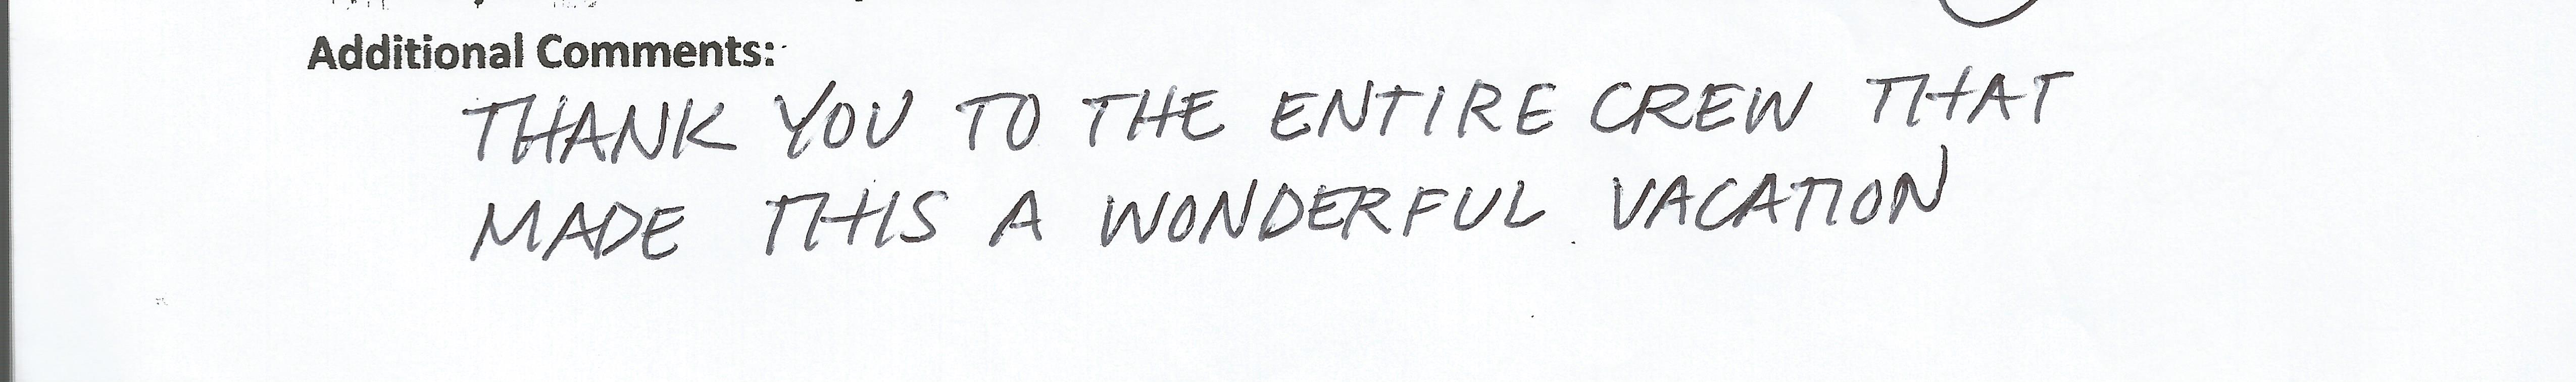 Additional Comments:
THANK YOU TO THE ENTIRE CREW THAT
MADE THIS A WONDERFUL VACATION